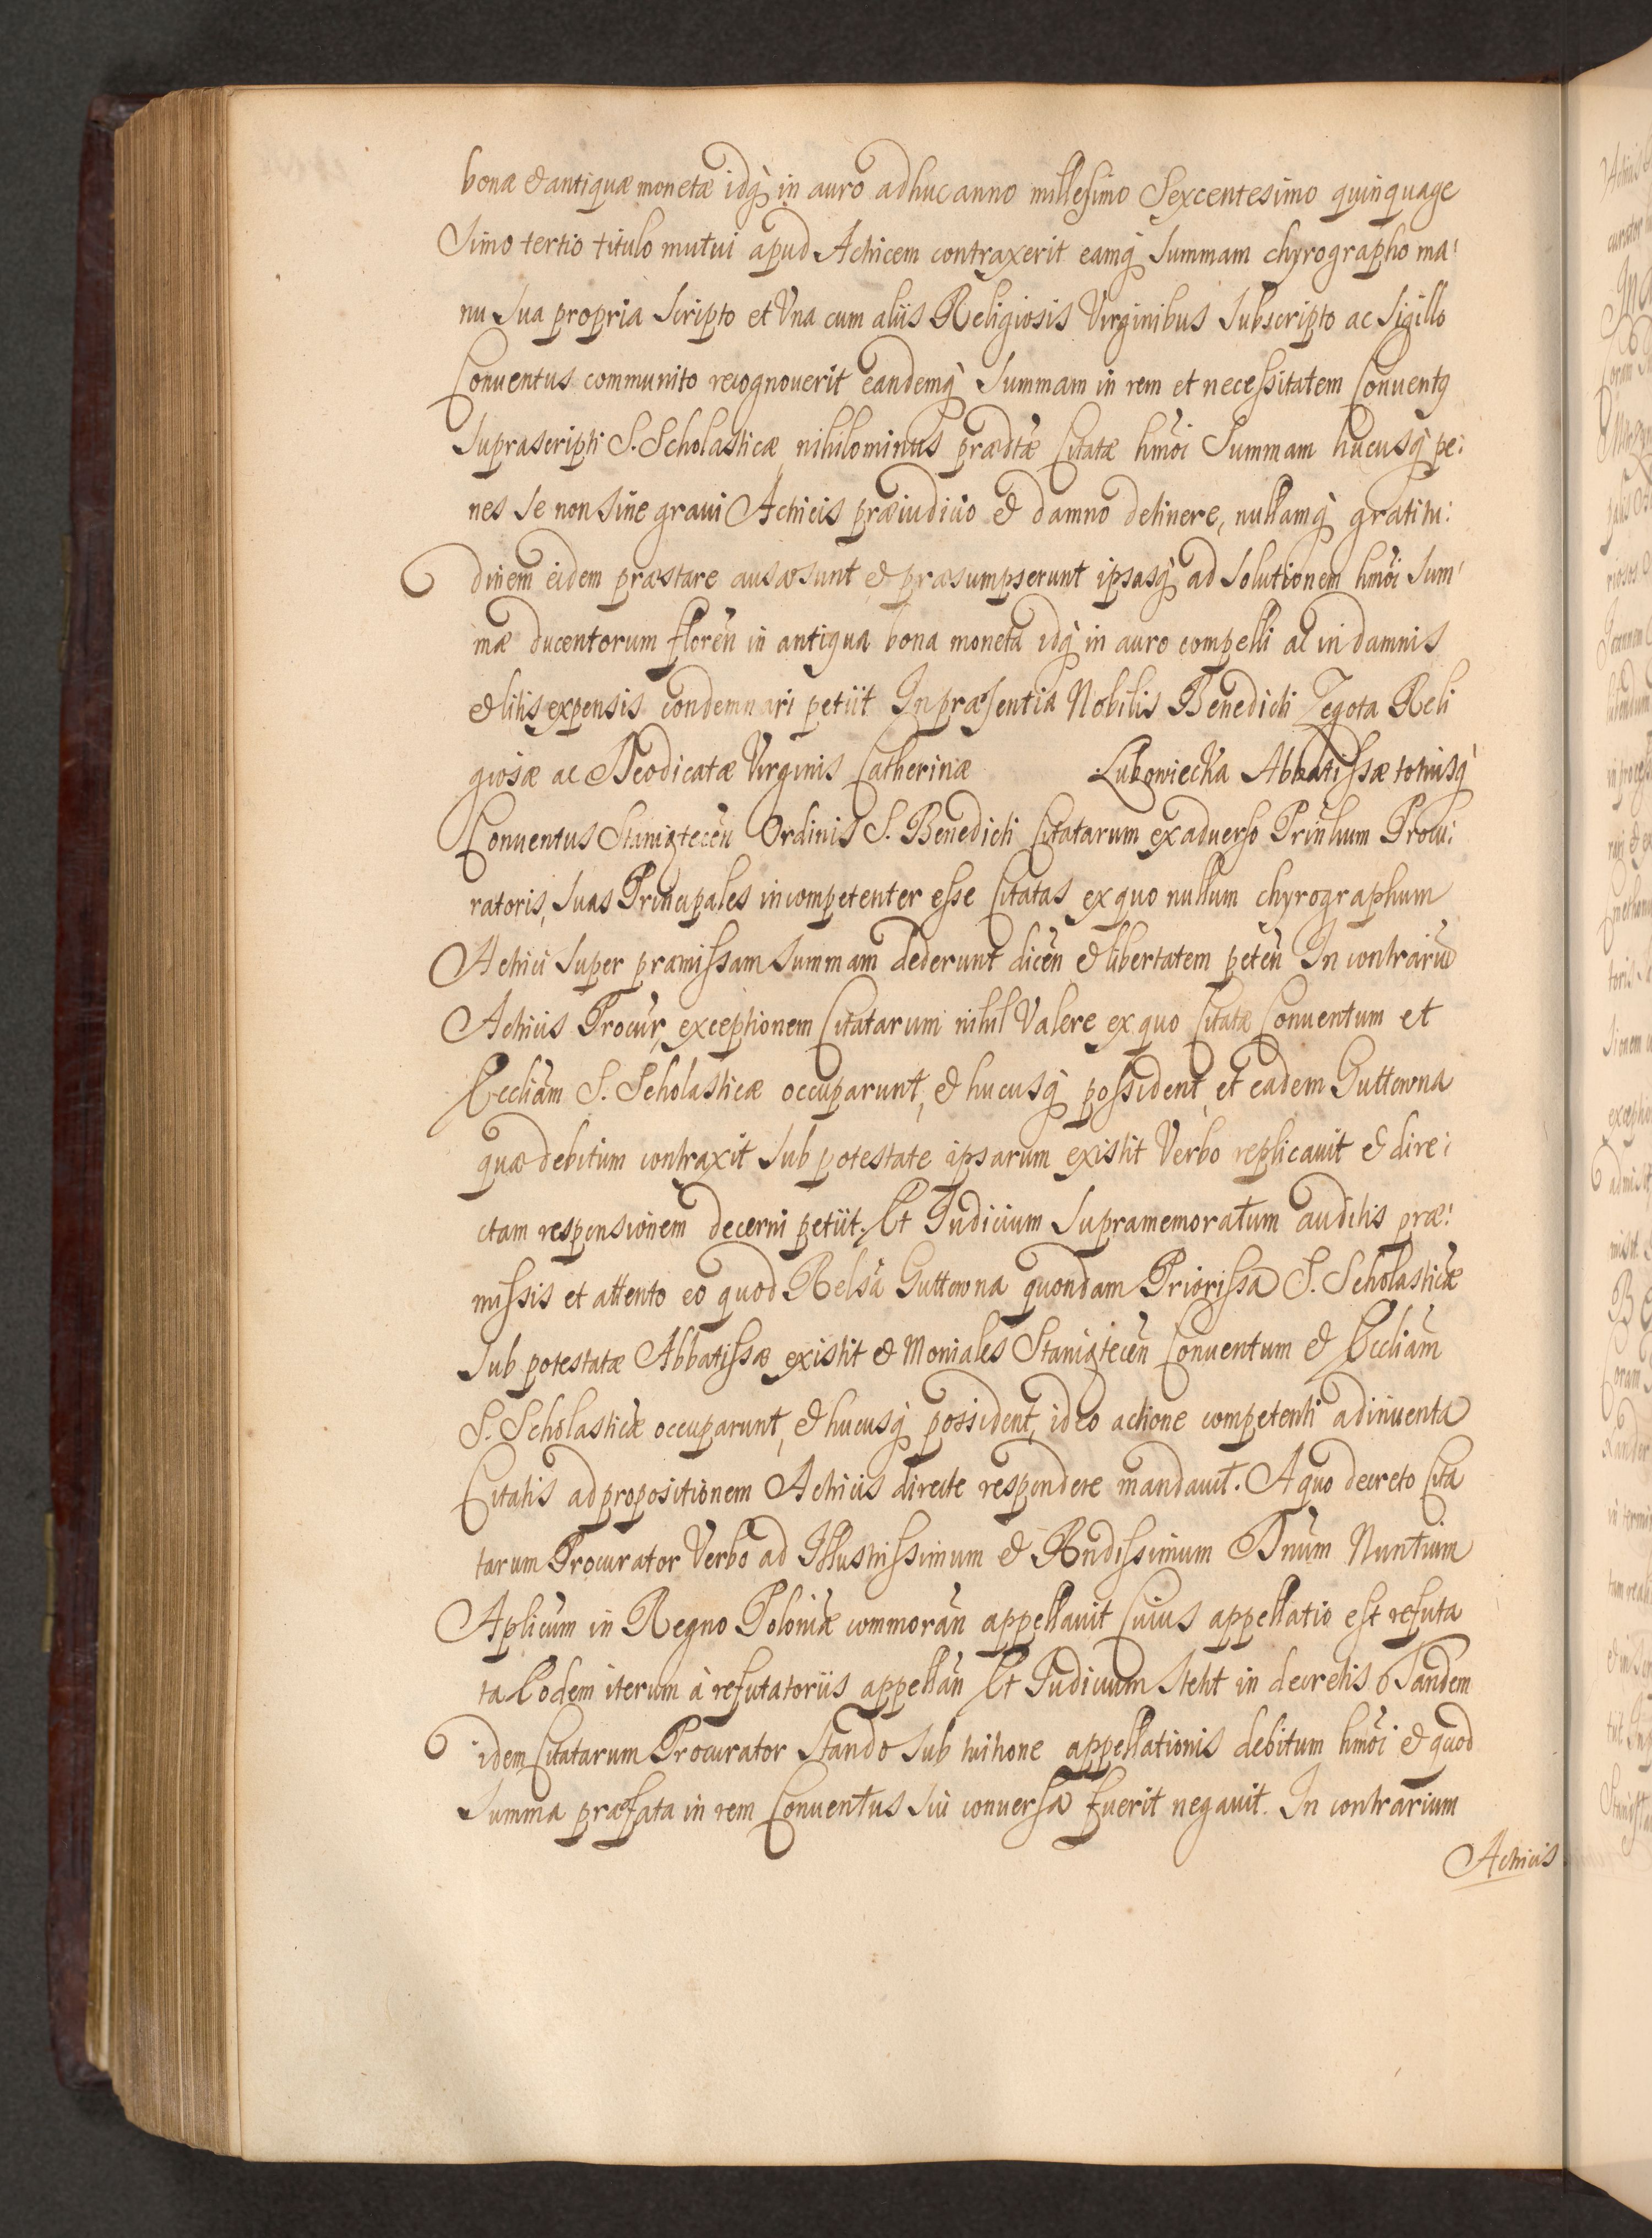 bonæ & antiquæ monetæ idq in auro adhuc anno millesimo Sexcentesimo quinquage
simo tertio titulo mutui apud Actricem contraxerit eamq Summam chyrographo ma:
nu Sua propria Scripto et Vna cum aliis Religiosis Virginibus Subscripto ac Sigillo
Conuentus communito recognouerit eandemq Summam in rem et necessitatem Conventq
Suprascripti S. Scholasticæ nihilominus prædtæ Citatæ hmoi Summam hucusq pe:
nes Se non Sine graui Actricis præiudicio & damno detinere, nullamq gratitu:
dinem eidem præstare ausæ sunt & præsumpserunt ipsasq ad Solutionem hmoi Sum:
mæ ducentorum floren in antiqua bona moneta idq in auro compelli ac in damnis
& litis expensis condemnari petiit In præsentia Nobilis Benedicti Zegota Reli
giosæ ac Deodicatæ Virginis Catherinæ Lubowiecka Abbatissæ totiusq
Conuentus Staniątecen Ordinis S. Benedicti Citatarum ex aduerso Prinlium Procu:
ratoris, Suas Principales incompetenter esse Citatas ex quo nullum chyrographum
Actrici Super præmissam Summam dederunt dicen & libertatem peten In contrariũ
Actricis Procur, exceptionem Citatarum nihil Valere ex quo Citatæ Conuentum et
Eccliam S. Scholasticæ occuparunt, & hucusq possident, et eadem Guttowna
quæ debitum contraxit Sub potestate ipsarum existit Verbo replicauit & dire:
ctam responsionem decerni petiit. Et Iudicium Supramemoratum auditis præ:
missis et attento eo quod Relsa Guttowna quondam Priorissa S. Scholasticæ
Sub potestatæ Abbatissæ existit & Moniales Staniątecen Conuentum & Eccliam
S. Scholasticæ occuparunt, & hucusq possident, ideo actione competenti adinuenta
Citatis ad propositionem Actricis directe respondere mandauit. A quo decreto Cita
tarum Procurator Verbo ad Illustrissimum & Rndissimum Dnum Nuntium
Aplicum in Regno Poloniæ commoran appellauit Cuius appellatio est refuta
ta Eodem iterum à refutatoriis appellan Et Iudicium Stetit in decretis Tandem
idem Citatarum Procurator Stando Sub tuitione appellationis debitum hmoi & quod
Summa præfata in rem Conuentus Sui conuersa fuerit negauit. In contrarium
Actricis